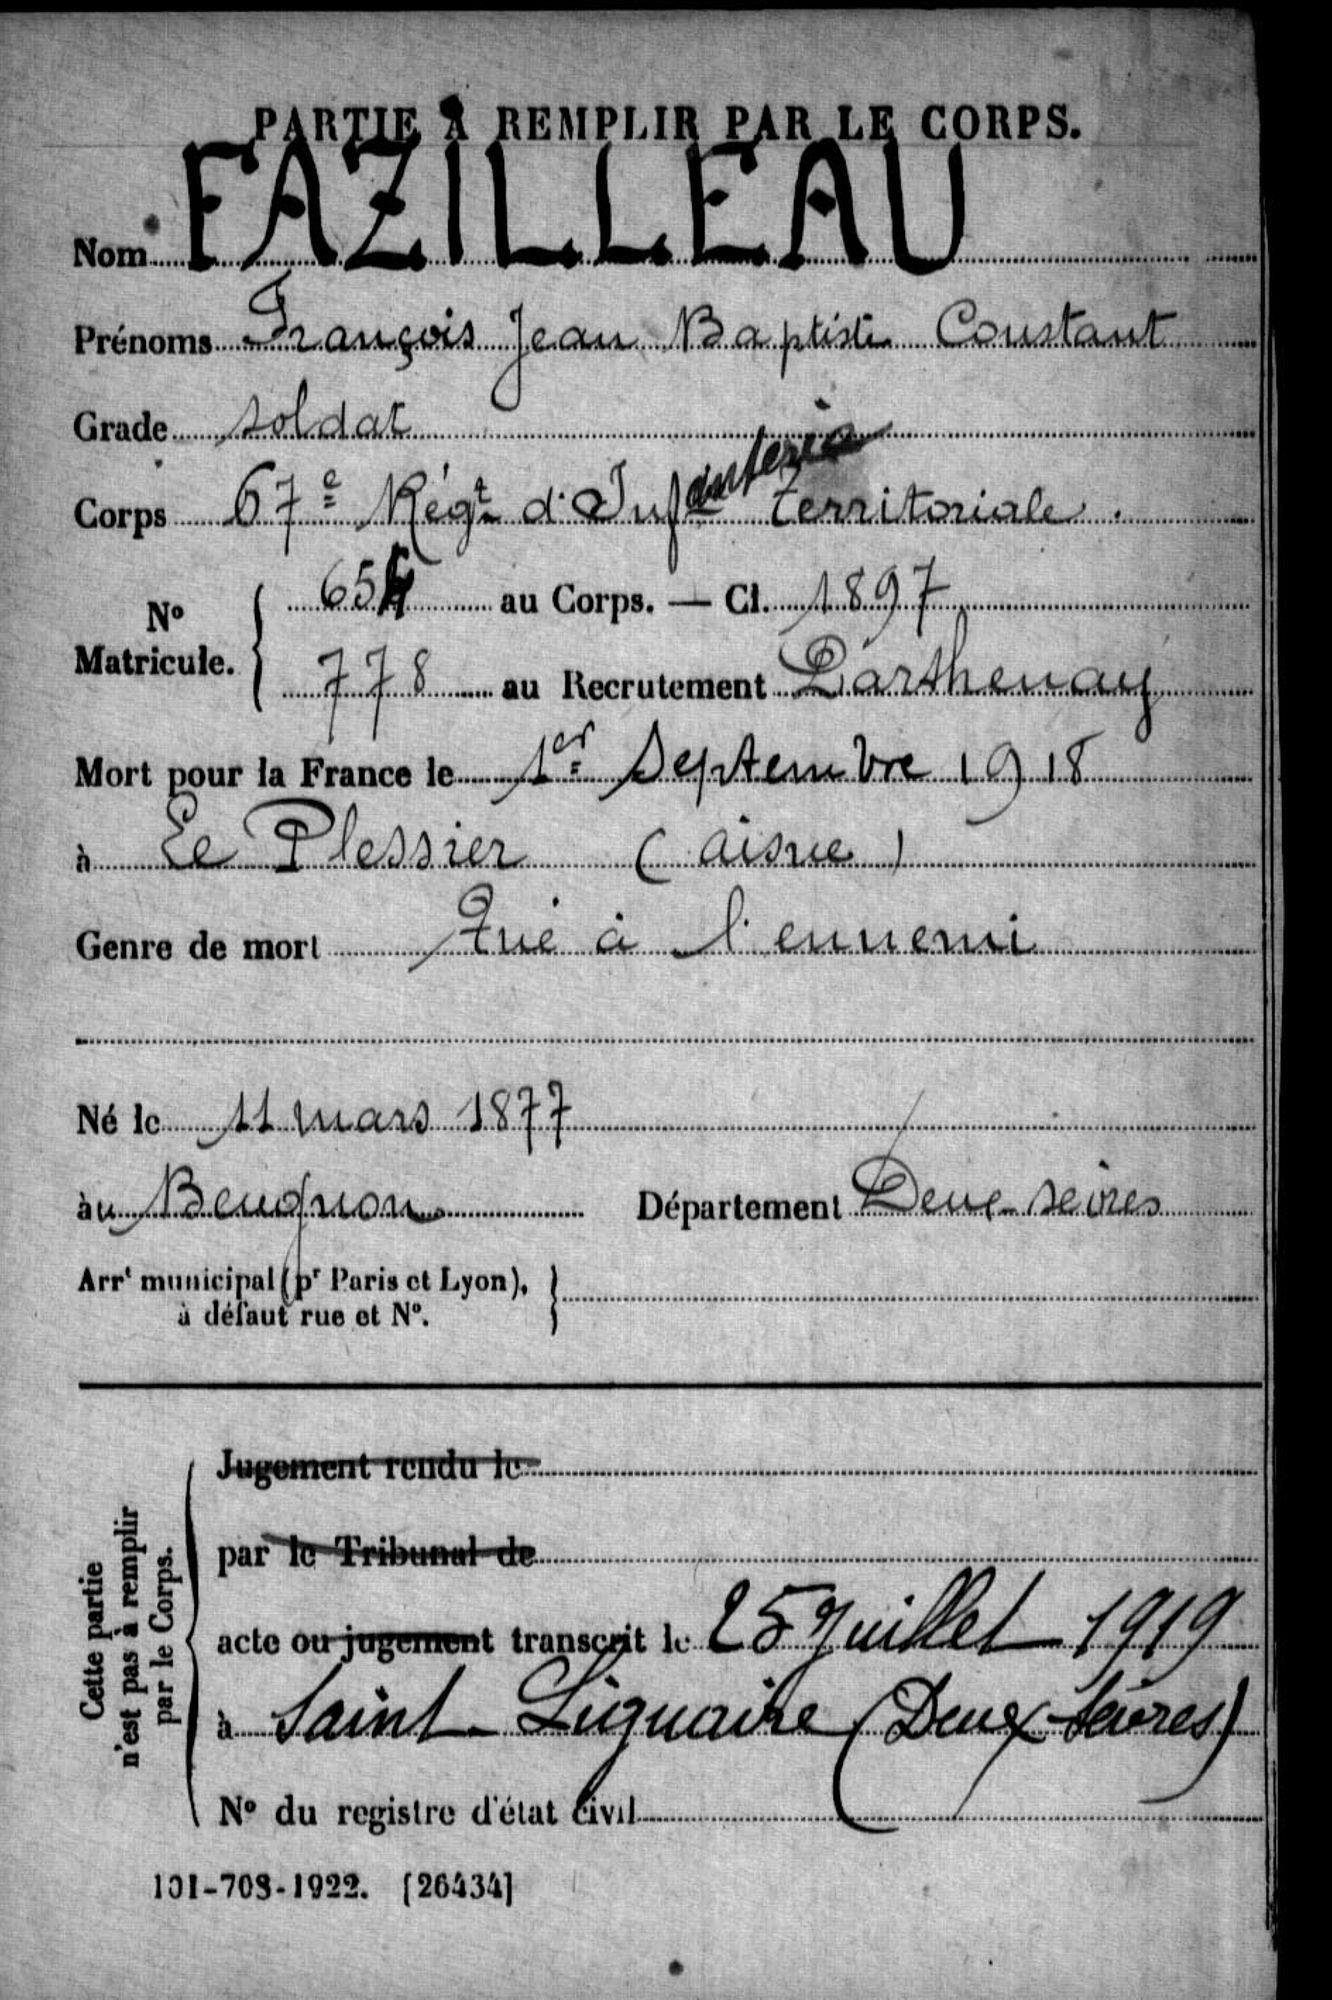 PARTIE À REMPLIR PAR LE CORPS.
Nom FAZILLEAU
Prénoms François Jean Baptiste Constant
Grade soldat
Corps 67e Régt d'Infanterie territoriale.
No Matricule. 654 au Corps. — Cl. 1897
778 au Recrutement Parthenay
Mort pour la France le 1er Septembre 1918
à Le Plessier (aisne)
Genre de mort Tué à l'ennemi
Né le 11 mars 1877
àu Beugnon Département Deux-sèvres
Arrt municipal (pr Paris et Lyon),
à défaut rue et No.
Cette partie
n'est pas à remplir
par le Corps.
Jugement rendu le
par le Tribunal de
acte ou jugement transcrit le 25 Juillet 1919
à Saint-Liguaire (Deux-Sèvres)
No du registre d'état civil
101-708-1922. [26434]